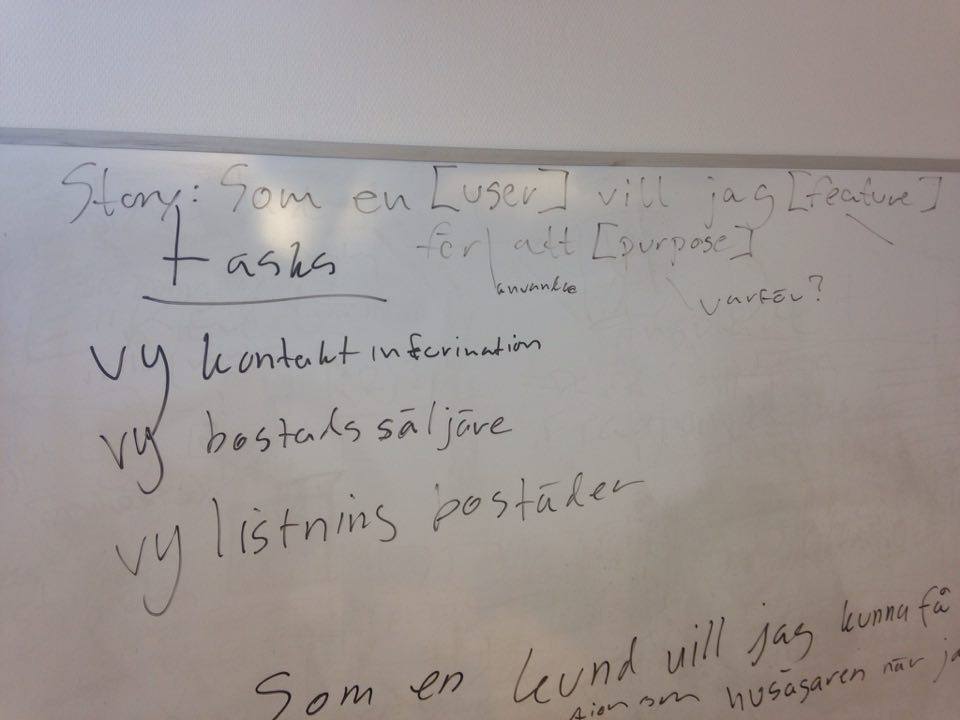 Story: Som en [user] vill jag [feature]
för att [purpose]
tasks
varför?
vy kontaktinformation
vy bostadssäljare
vy listning bostäder
Som en kund vill jag kunna få
som husägaren när